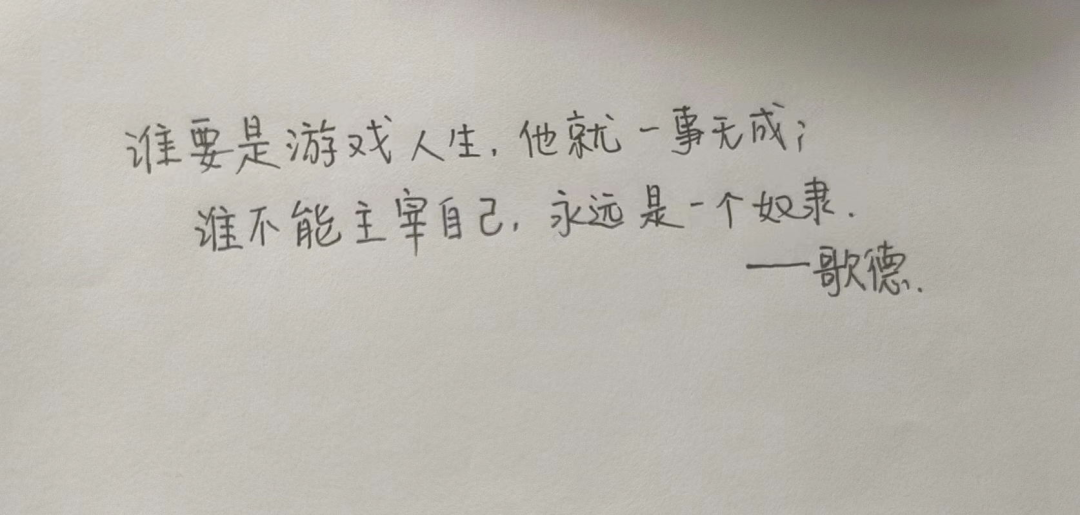 谁要是游戏人生,他就一事无成;
谁不能主宰自己,永远是一个奴隶.
——歌德.